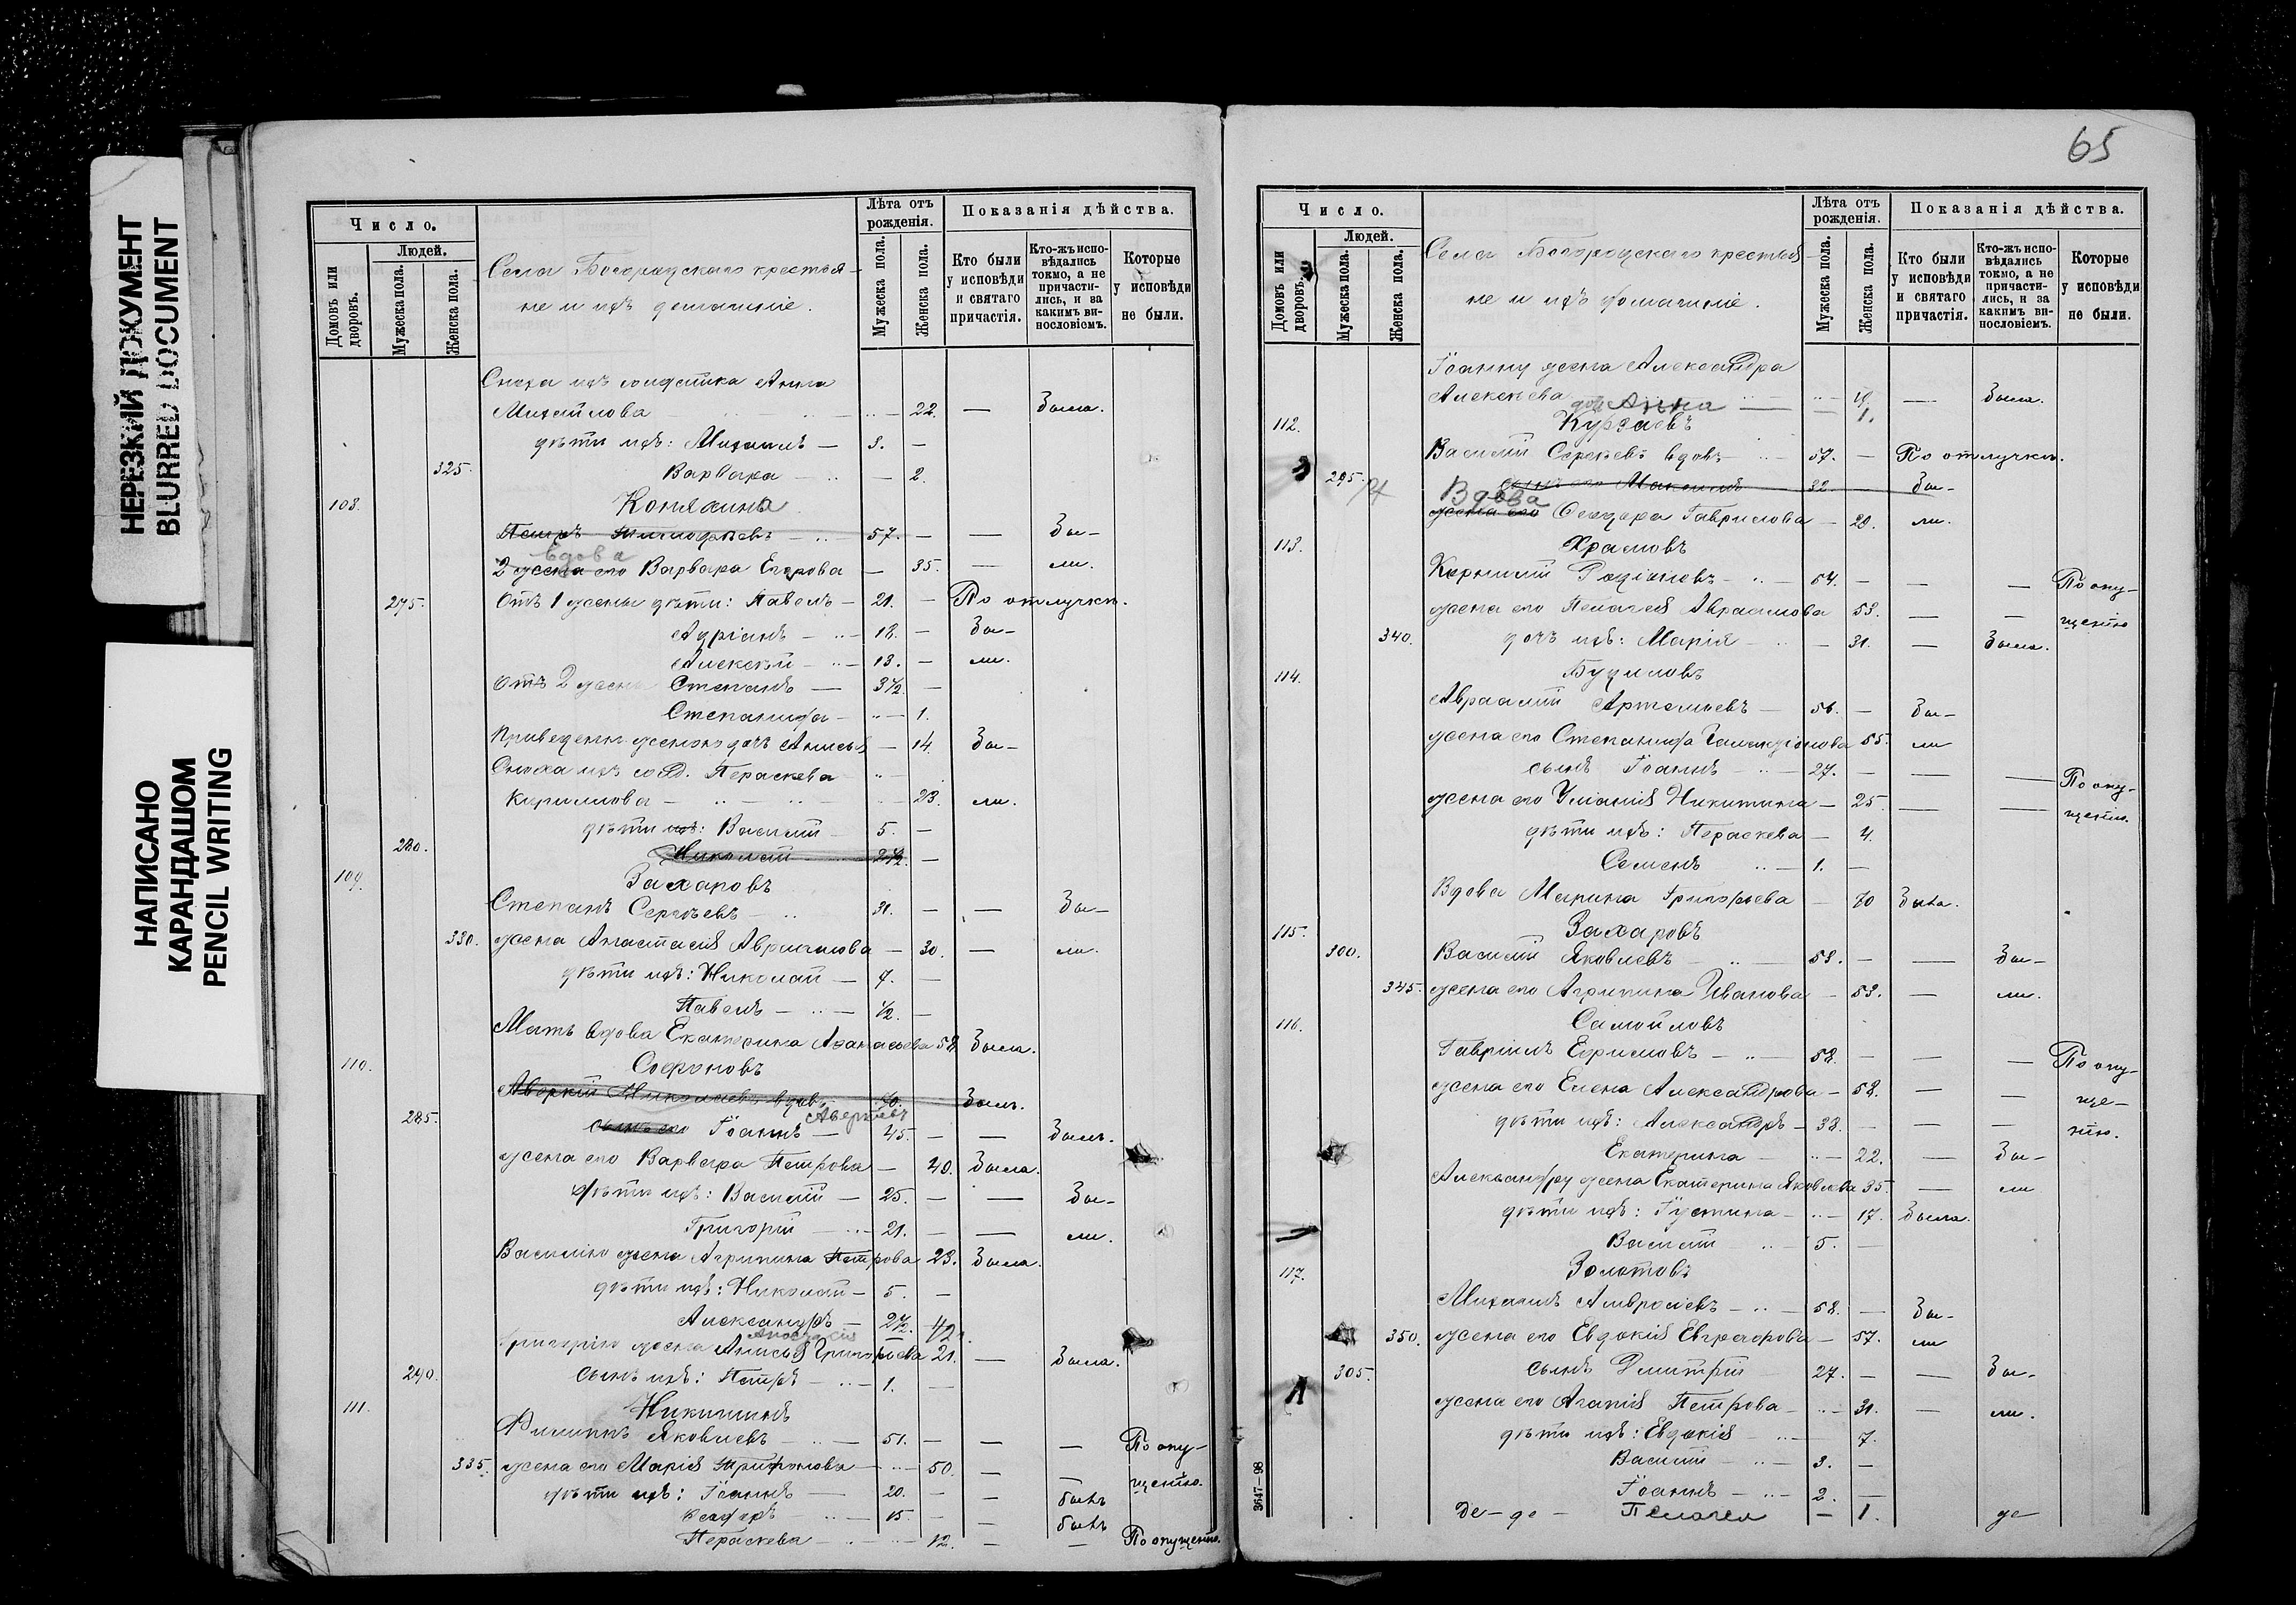 НЕРЕЗКИЙ ДОКУМЕНТ
BLURRED DOCUMENT
НАПИСАНО
КАРАНДАШОМ
PENCIL WRITING
Число.
Домовъ или дворовъ.
Людей.
Мужеска пола.
Женска пола.
Села Богородскаго крестья-
не и ихъ домашніе.
Лѣта отъ рожденія.
Мужеска пола.
Женска пола.
Показанія дѣйства.
Кто были у исповѣди и святаго причастія.
Кто-жъ исповѣдались токмо, а не причастились, и за какимъ винословіемъ.
Которые у исповѣди не были.
Сноха ихъ солдатка Анна
Михайлова — 22. — Была.
дѣти ихъ: Михаилъ — 3. —
325. Варвара — 2.
108. Коняхинъ
Петръ Тимофѣевъ — 57. — — Бы-
вдова
2 жена его Варвара Егорова — 35. — ли.
275. Отъ 1 жены дѣти: Павелъ — 21. — По отлучкѣ.
Адріанъ — 18. — Бы-
Алексѣй — 13. — ли.
Отъ 2 жены Степанъ — 3½ —
Степанида — 1.
Приведенная женою дочь Анисья — 14. Бы-
Сноха ихъ солд. Параскева
Кириллова — 23. ли.
дѣти ихъ: Василій — 5. —
280. Николай 2½. —
109. Захаровъ
Степанъ Сергѣевъ — 31. — — Бы-
330. жена Анастасія Авраамова — 30. — ли.
дѣти ихъ: Николай — 7. —
Павелъ — ½. —
Мать вдова Екатерина Афанасьева 58. Была.
110. Софроновъ
Аверкій Николаевъ вдовъ 70. Былъ.
Аверкіевъ
285. сынъ его Іоаннъ — 45. — — Былъ.
жена его Варвара Петрова — 40. Была.
дѣти ихъ: Василій — 25. — — Бы-
Григорій — 21. — — ли.
Василію жена Агрипина Петрова 23. Была.
дѣти ихъ: Николай — 5. —
Александръ — 2½.
Анастасія
Григорію жена Анисья Григорьева 21. — Была.
290. сынъ ихъ: Петръ — 1. —
111. Никишинъ
Филиппъ Яковлевъ — 51. — — — По опу-
335. жена его Марія Трифонова — 50. — — щенію.
дѣти ихъ: Іоаннъ — 20. — — былъ
15. — — былъ
Параскева — 12. — — По опущенію.
65
Число.
Домовъ или дворовъ.
Людей.
Мужеска пола.
Женска пола.
Села Богородскаго крестья-
не и ихъ домашніе.
Лѣта отъ рожденія.
Мужеска пола.
Женска пола.
Показанія дѣйства.
Кто были у исповѣди и святаго причастія.
Кто-жъ исповѣдались токмо, а не причастились, и за какимъ винословіемъ.
Которые у исповѣди не были.
Іоанну жена Александра
Алексѣева — 19. — Была.
дочь Анна — 1.
112.
Василій Сергѣевъ вдовъ 57. — По отлучкѣ.
295. сынъ его Максимъ 32. Бы-
Вдова
жена его Ѳеодора Гаврилова — 28. ли.
113. Храмовъ
Корнилій Родіоновъ — 54. — — — По опу-
жена его Пелагея Авраамова 53. — — щенію
340. дочь ихъ: Марія — 31. — Была.
114. Будиловъ
Авраамій Артемьевъ — 56. — Бы-
жена его Степанида Галактіонова 55. ли
сынъ Іоаннъ — 27. — — — По опу-
жена его Уліанія Никитина — 25. — — щенію.
дѣти ихъ: Параскева — 4.
Семенъ — 1. —
Вдова Марина Григорьева — 70 Была.
115. Захаровъ
300. Василій Яковлевъ — 53. — — Бы-
345. жена его Агрипина Иванова — 53. — ли.
116. Самойловъ
Гавріилъ Ефимовъ — 58. — — — По опу-
жена его Елена Александрова — 58. — — ще-
дѣти ихъ: Александръ — 38. — — — нію.
Екатерина — 22. — Бы-
Александру жена Екатерина Яковлева 35. — ли
дѣти ихъ: Іустина — 17. Была.
Василій — 5. —
117. Золотовъ
Михаилъ Амвросіевъ — 58. — Бы-
350. жена его Евдокія Евграфова — 57. ли
305. сынъ Димитрій 27. — — Бы-
жена его Агапія Петрова — 31. — ли.
дѣти ихъ: Евдокія — 7.
Василій — 3. —
Іоаннъ — 2. —
Де-де- Пелагея — 1. де
3647—98